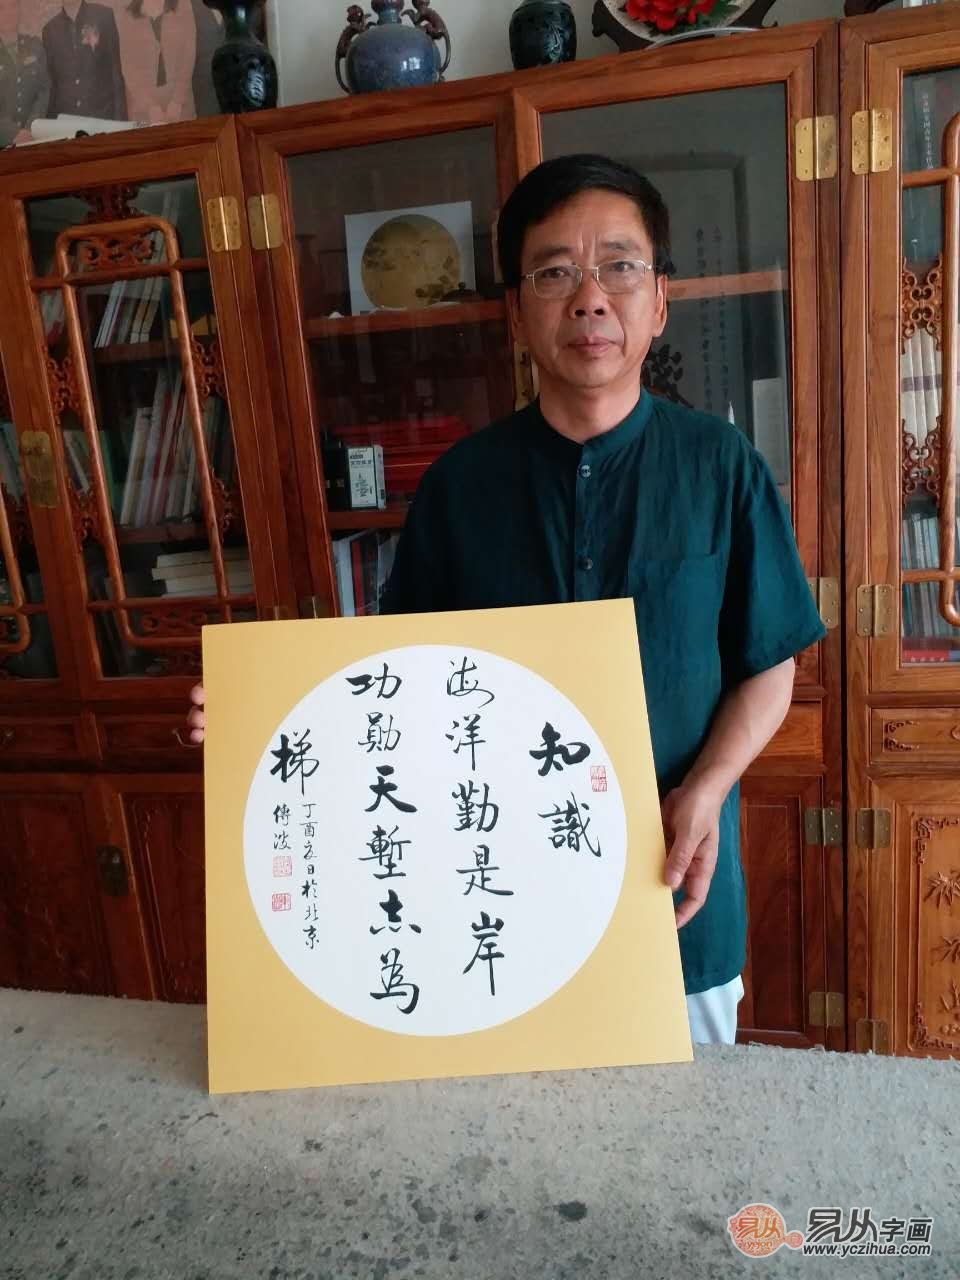 知識
海洋勤是岸
功勛天塹志為
梯
丁酉夏日於北京
傳波
易从字画
www.yczihua.com